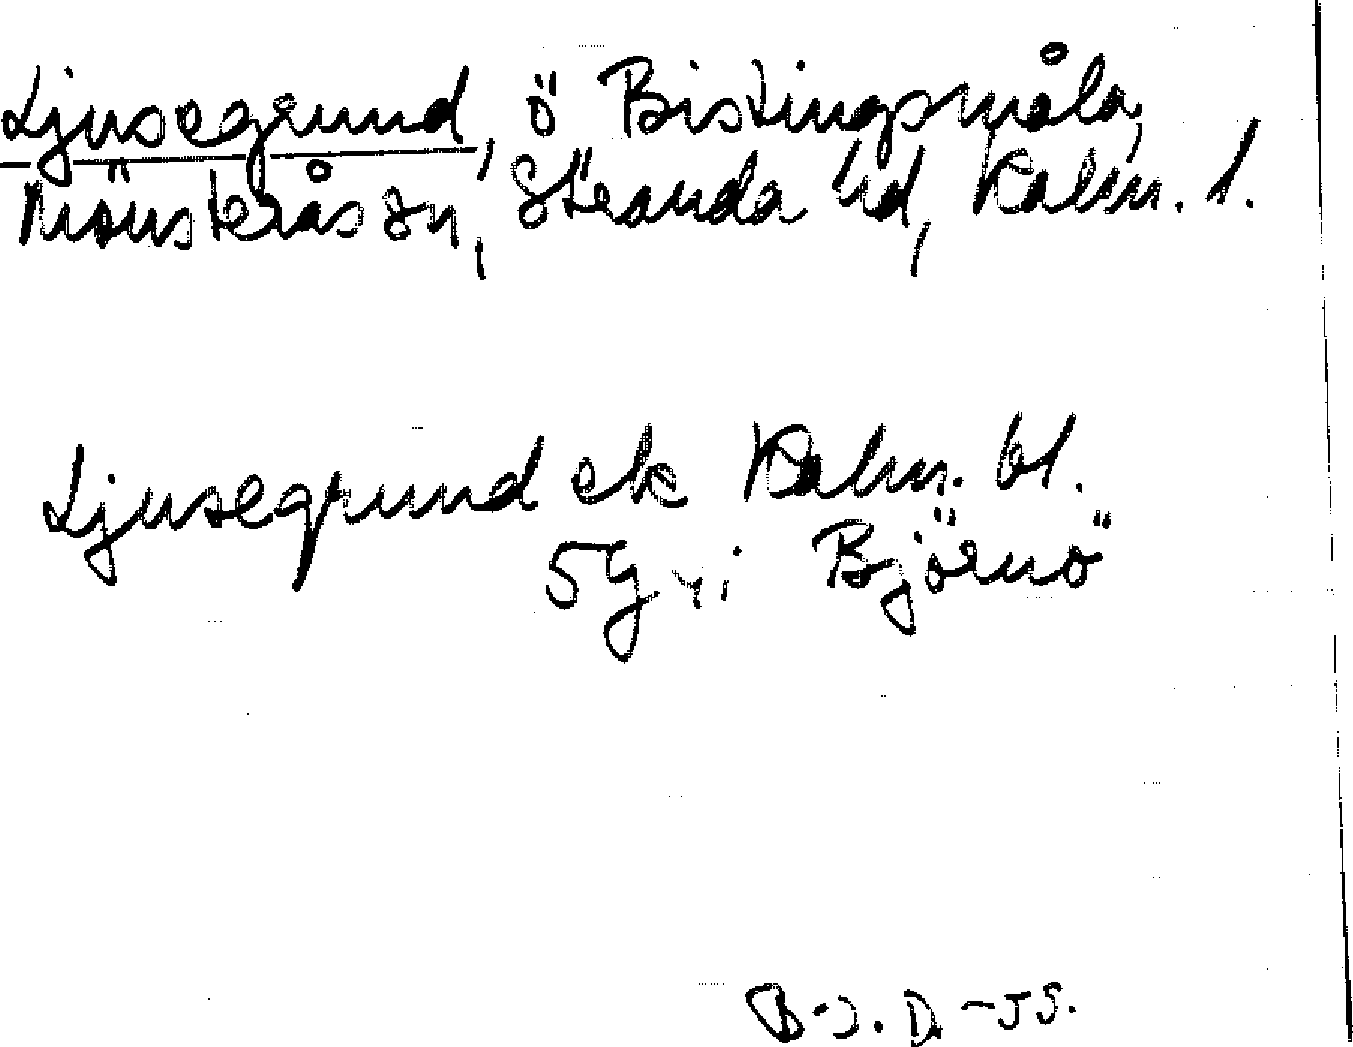 Ljusegrund, ö Bistingsmåla,
Mönsterås sn, Stranda hd, Kalm. l.
Ljusegrund ek Kalm. bl.
5G vi Björnö
B-J. D. -55.